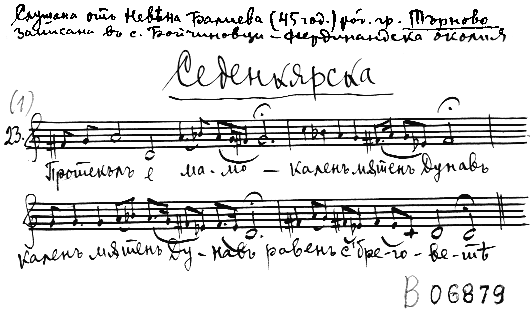 Слушана отъ Невѣна Балиева (45 год.) род. гр. Търново
записана въ с. Бойчиновци – Фердинандска околия
Седенкярска
(1)
23.
Протекълъ е ма-мо – каленъ мѫтенъ Дунавъ
каленъ мѫтенъ Ду-навъ равенъ с' бре-го-ве-тѣ
B 06879